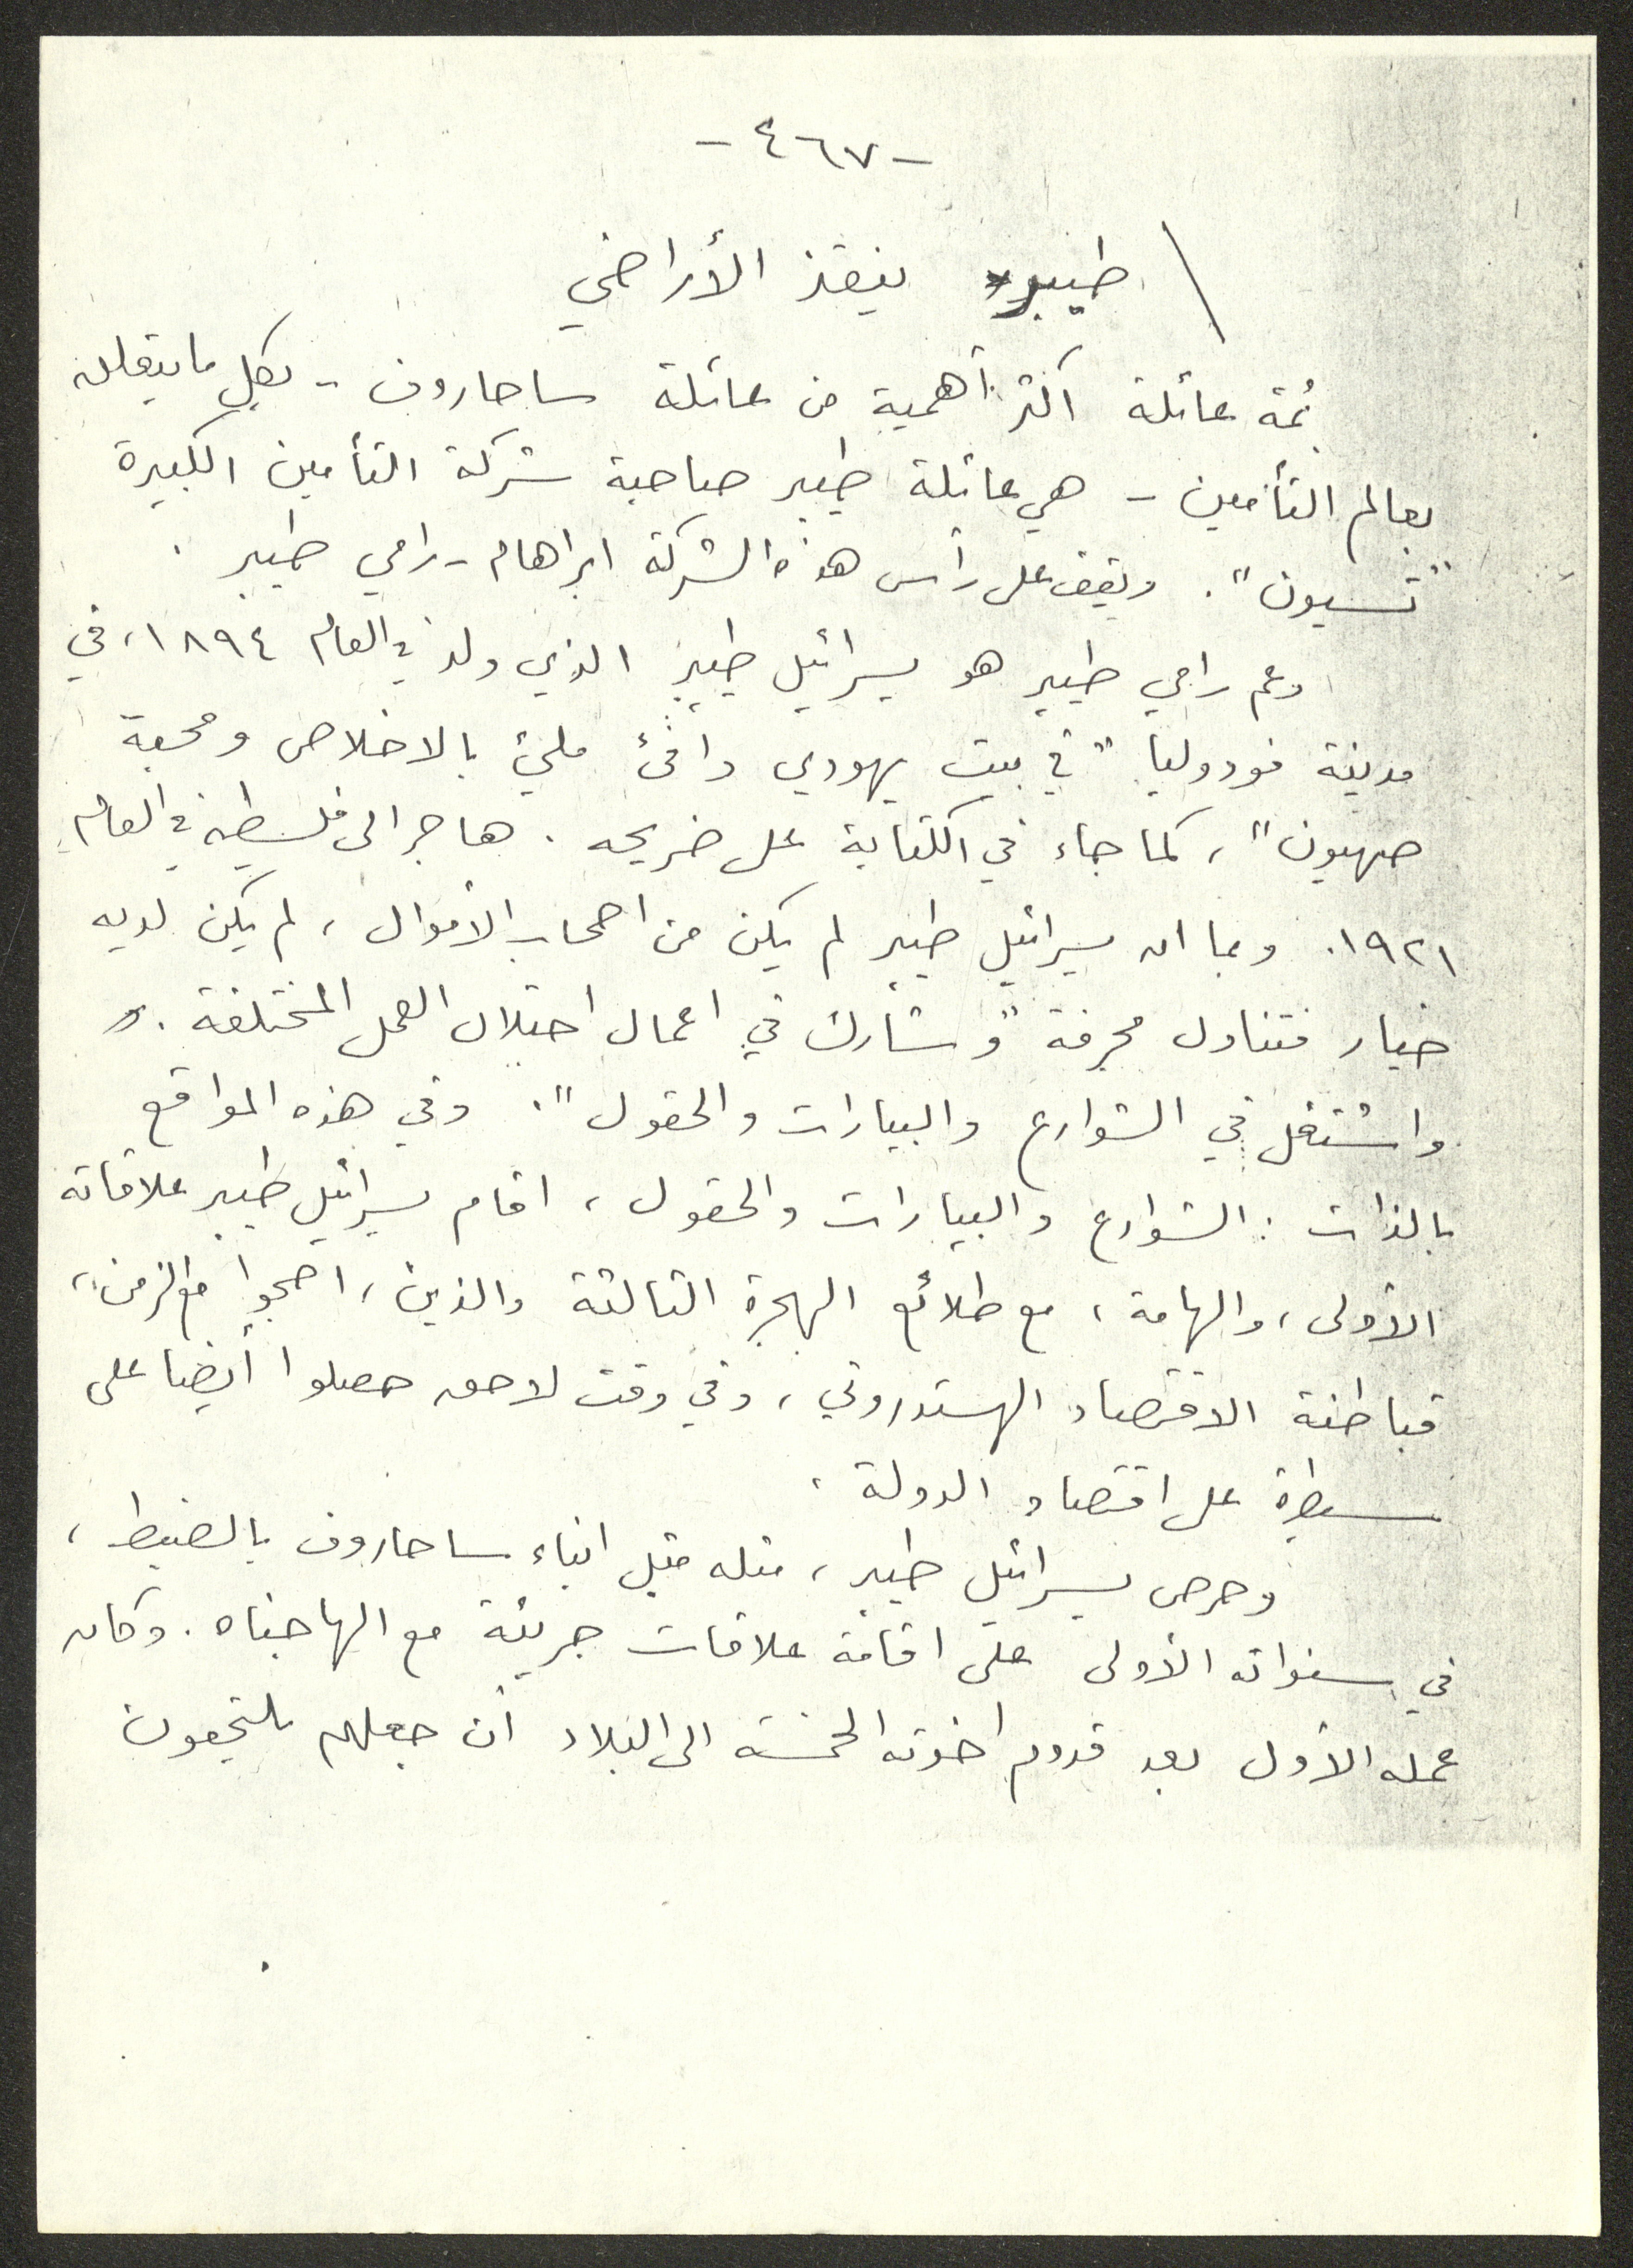 - ٤٦٧ -
طيبر ينقذ الأراضي
ثمة عائلة اكثر أهمية من عائلة ساحاروف - بكل ما يتعلق
بعالم التأمين - هي عائلة طيبر صاحبة شركة التأمين الكبيرة
"تسيون". ويقف على رأس هذه الشركة ابراهام - رامي طيبر .
وعم رامي طيبر هو يسرائيل طيبر الذي ولد في العام ١٨٩٤، في
مدينة فودوليا "في بيت يهودي دافئ مليئ بالاخلاص ومحبة
صهيون"، كما جاء في الكتابة على ضريحه . هاجر الى فلسطين في العام
١٩٢١. وبما ان يسرائيل طيبر لم يكن من اصحاب الأموال ، لم يكن لديه
خيار فتناول مجرفة "وشارك في اعمال احتلال العمل المختلفة .
واشتغل في الشوارع والبيارات والحقول". وفي هذه المواقع
بالذات : الشوارع والبيارات والحقول ، اقام يسرائيل طيبر علاقاته
الأولى ، والهامة ، مع طلائع الهجرة الثالثة والذين ، اصبحوا مع الزمن ،
قباطنة الاقتصاد الهستدروتي ، وفي وقت لاحق حصلوا أيضا على
سيطرة على اقتصاد الدولة .
وحرص يسرائيل طيبر ، مثله مثل ابناء ساحاروف بالضبط ،
في سنواته الأولى على اقامة علاقات جريئة مع الهاجناه . وكان
عمله الأول بعد قدوم اخوته الخمسة الى البلاد أن جعلهم يلتحقون